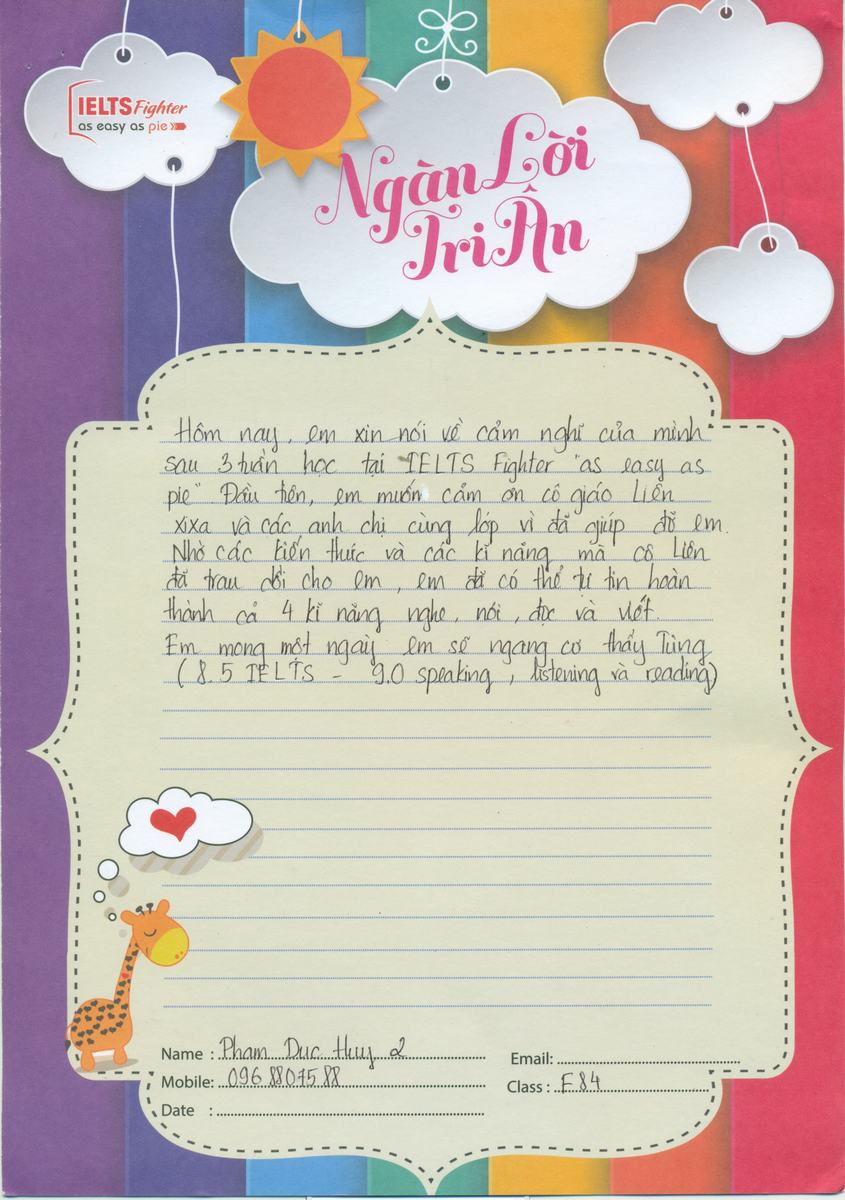 IELTS Fighter
as easy as pie
Ngàn Lời
Tri Ân
Hôm nay, em xin nói về cảm nghĩ của mình
sau 3 tuần học tại IELTS Fighter "as easy as
pie" Đầu tiên, em muốn cảm ơn cô giáo Liên
xixa và các anh chị cùng lớp vì đã giúp đỡ em.
Nhờ các kiến thức và các kĩ năng mà cô Liên
đã trau dồi cho em, em đã có thể tự tin hoàn
thành cả 4 kĩ năng nghe, nói, đọc và viết.
Em mong một ngày em sẽ ngang cơ thầy Tùng
(8.5 IELTS - 9.0 speaking, listening và reading)
Name : Pham Duc Huy 2
Email:
Mobile: 096 8807588
Class : F84
Date :